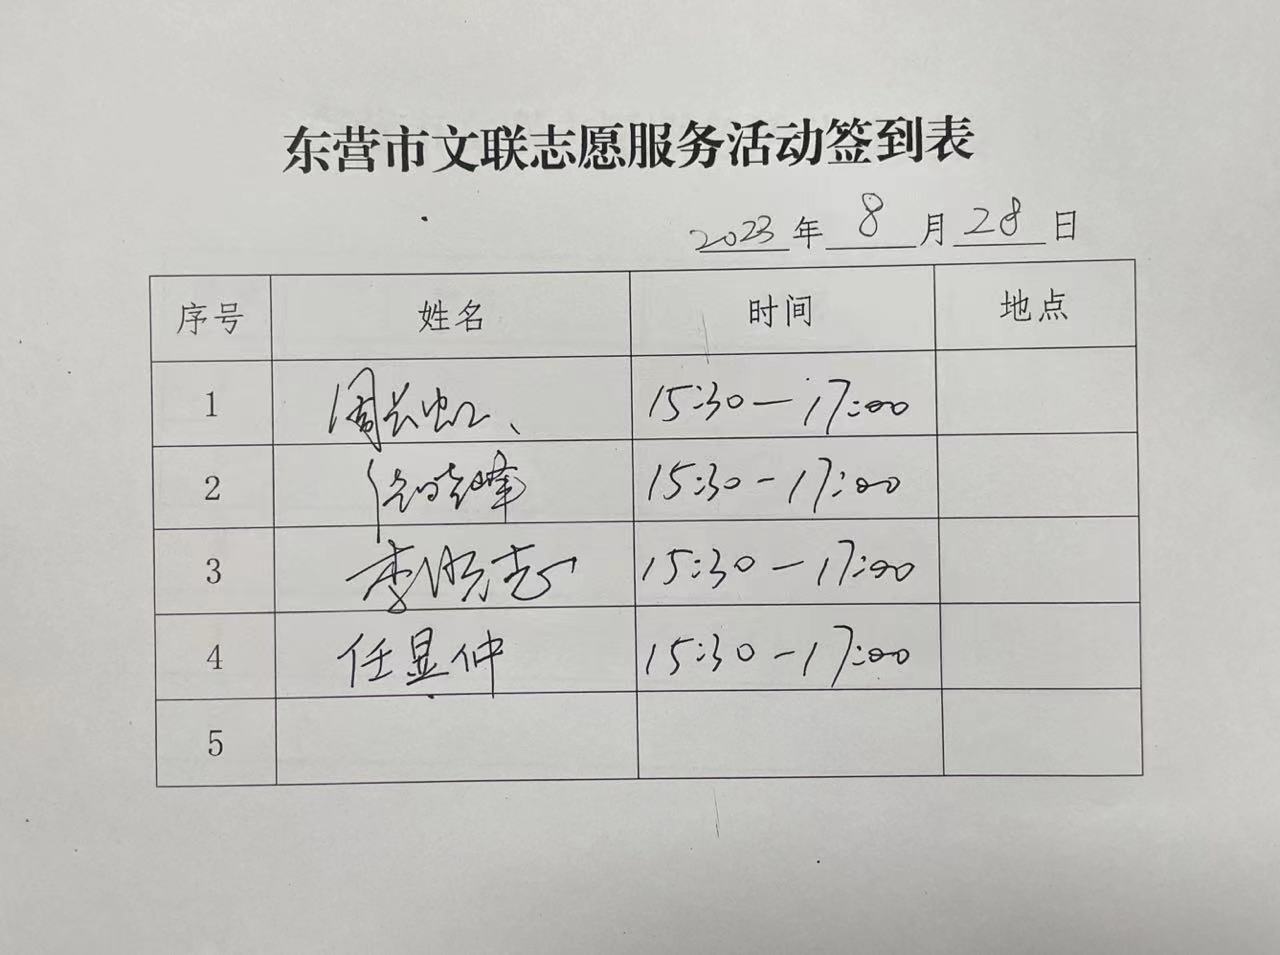 东营市文联志愿服务活动签到表
2023 年 8 月 28 日
序号 姓名 时间 地点
1 周长虹、 15:30—17:00
2 徐晓峰 15:30-17:00
3 李明志 15:30-17:00
4 任显仲 15:30-17:00
5